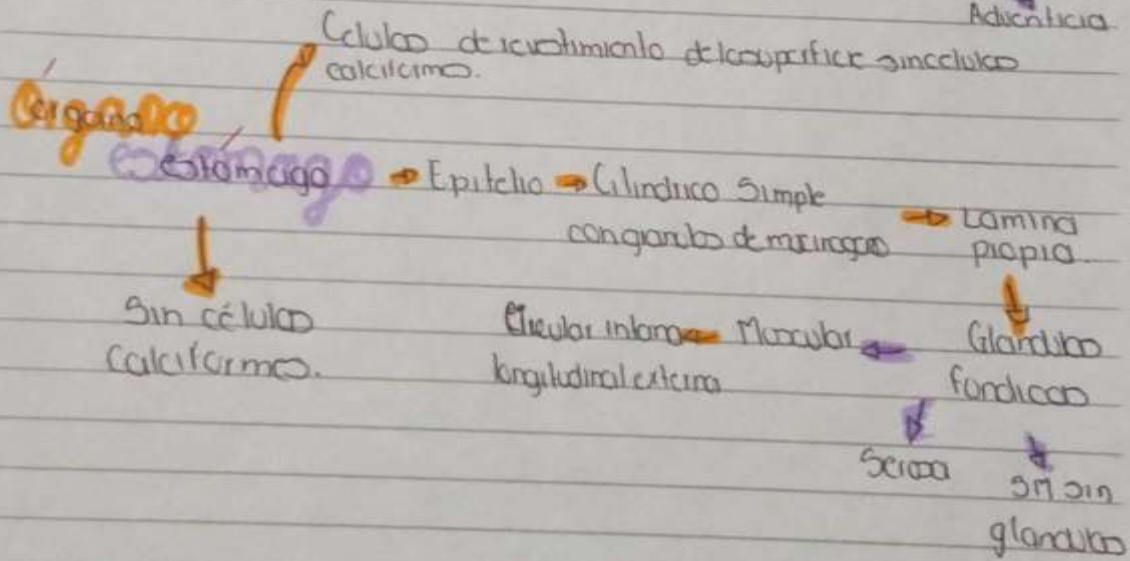 Adventicia
Células de revestimiento de la superficie sin células
caliciformes.
Órganos
estómago → Epitelio → Cilíndrico Simple
con granulos de mucinogeno
→ Lamina
propia
Sin células
Caliciformes.
Circular interna ← Muscular ← Glándulas
longitudinal externa
fundicas
Serosa
SM sin
glándulas